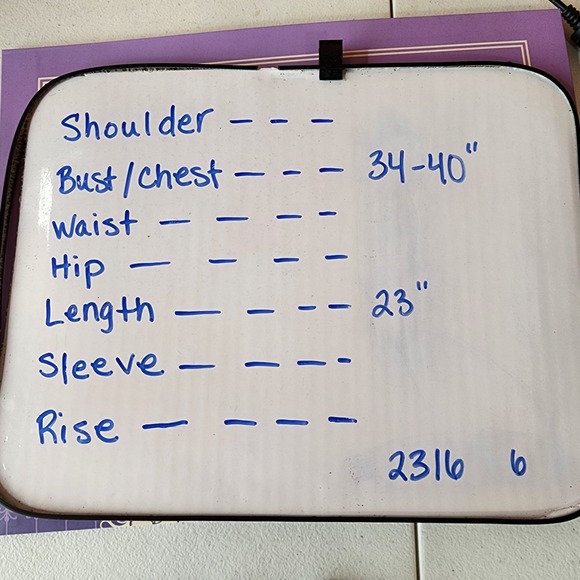 Shoulder - - -
Bust/chest - - - 34-40"
Waist - - - -
Hip - - - -
Length - - - - 23"
Sleeve - - - -
Rise - - - -
2316 6